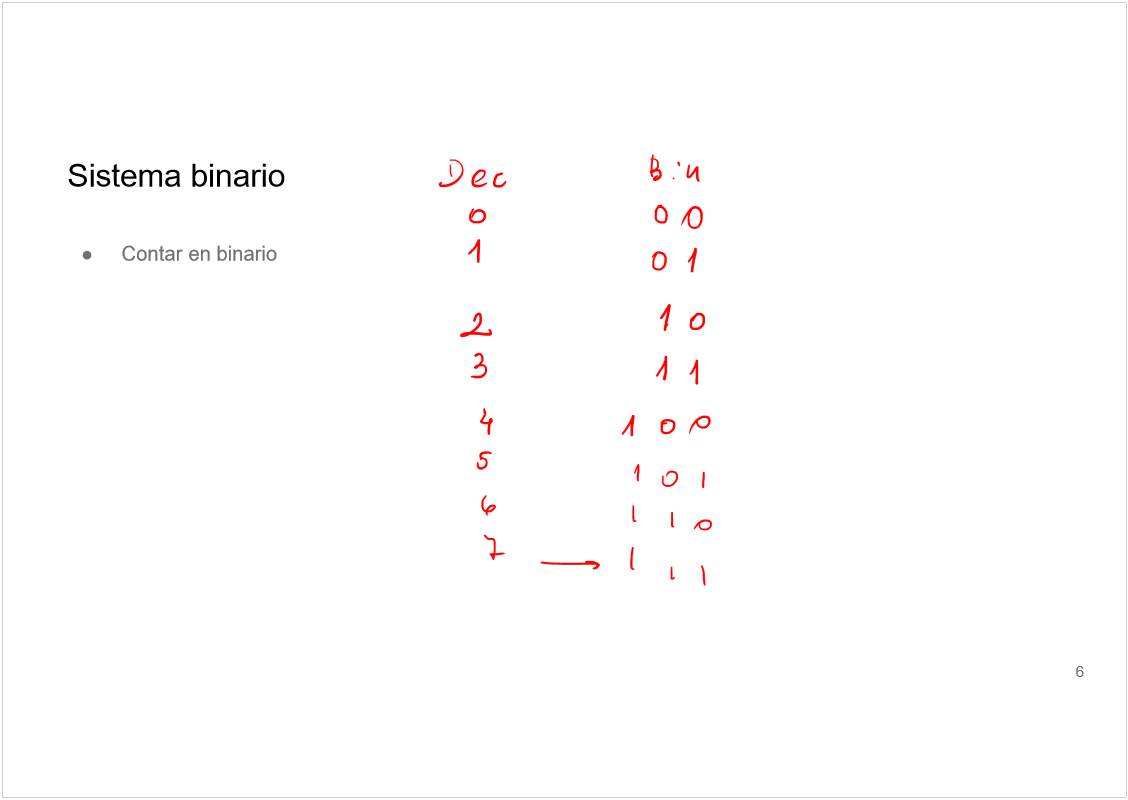 Sistema binario
● Contar en binario
Dec Bin
0 0 0
1 0 1
2 1 0
3 1 1
4 1 0 0
5 1 0 1
6 1 1 0
7 → 1 1 1
6